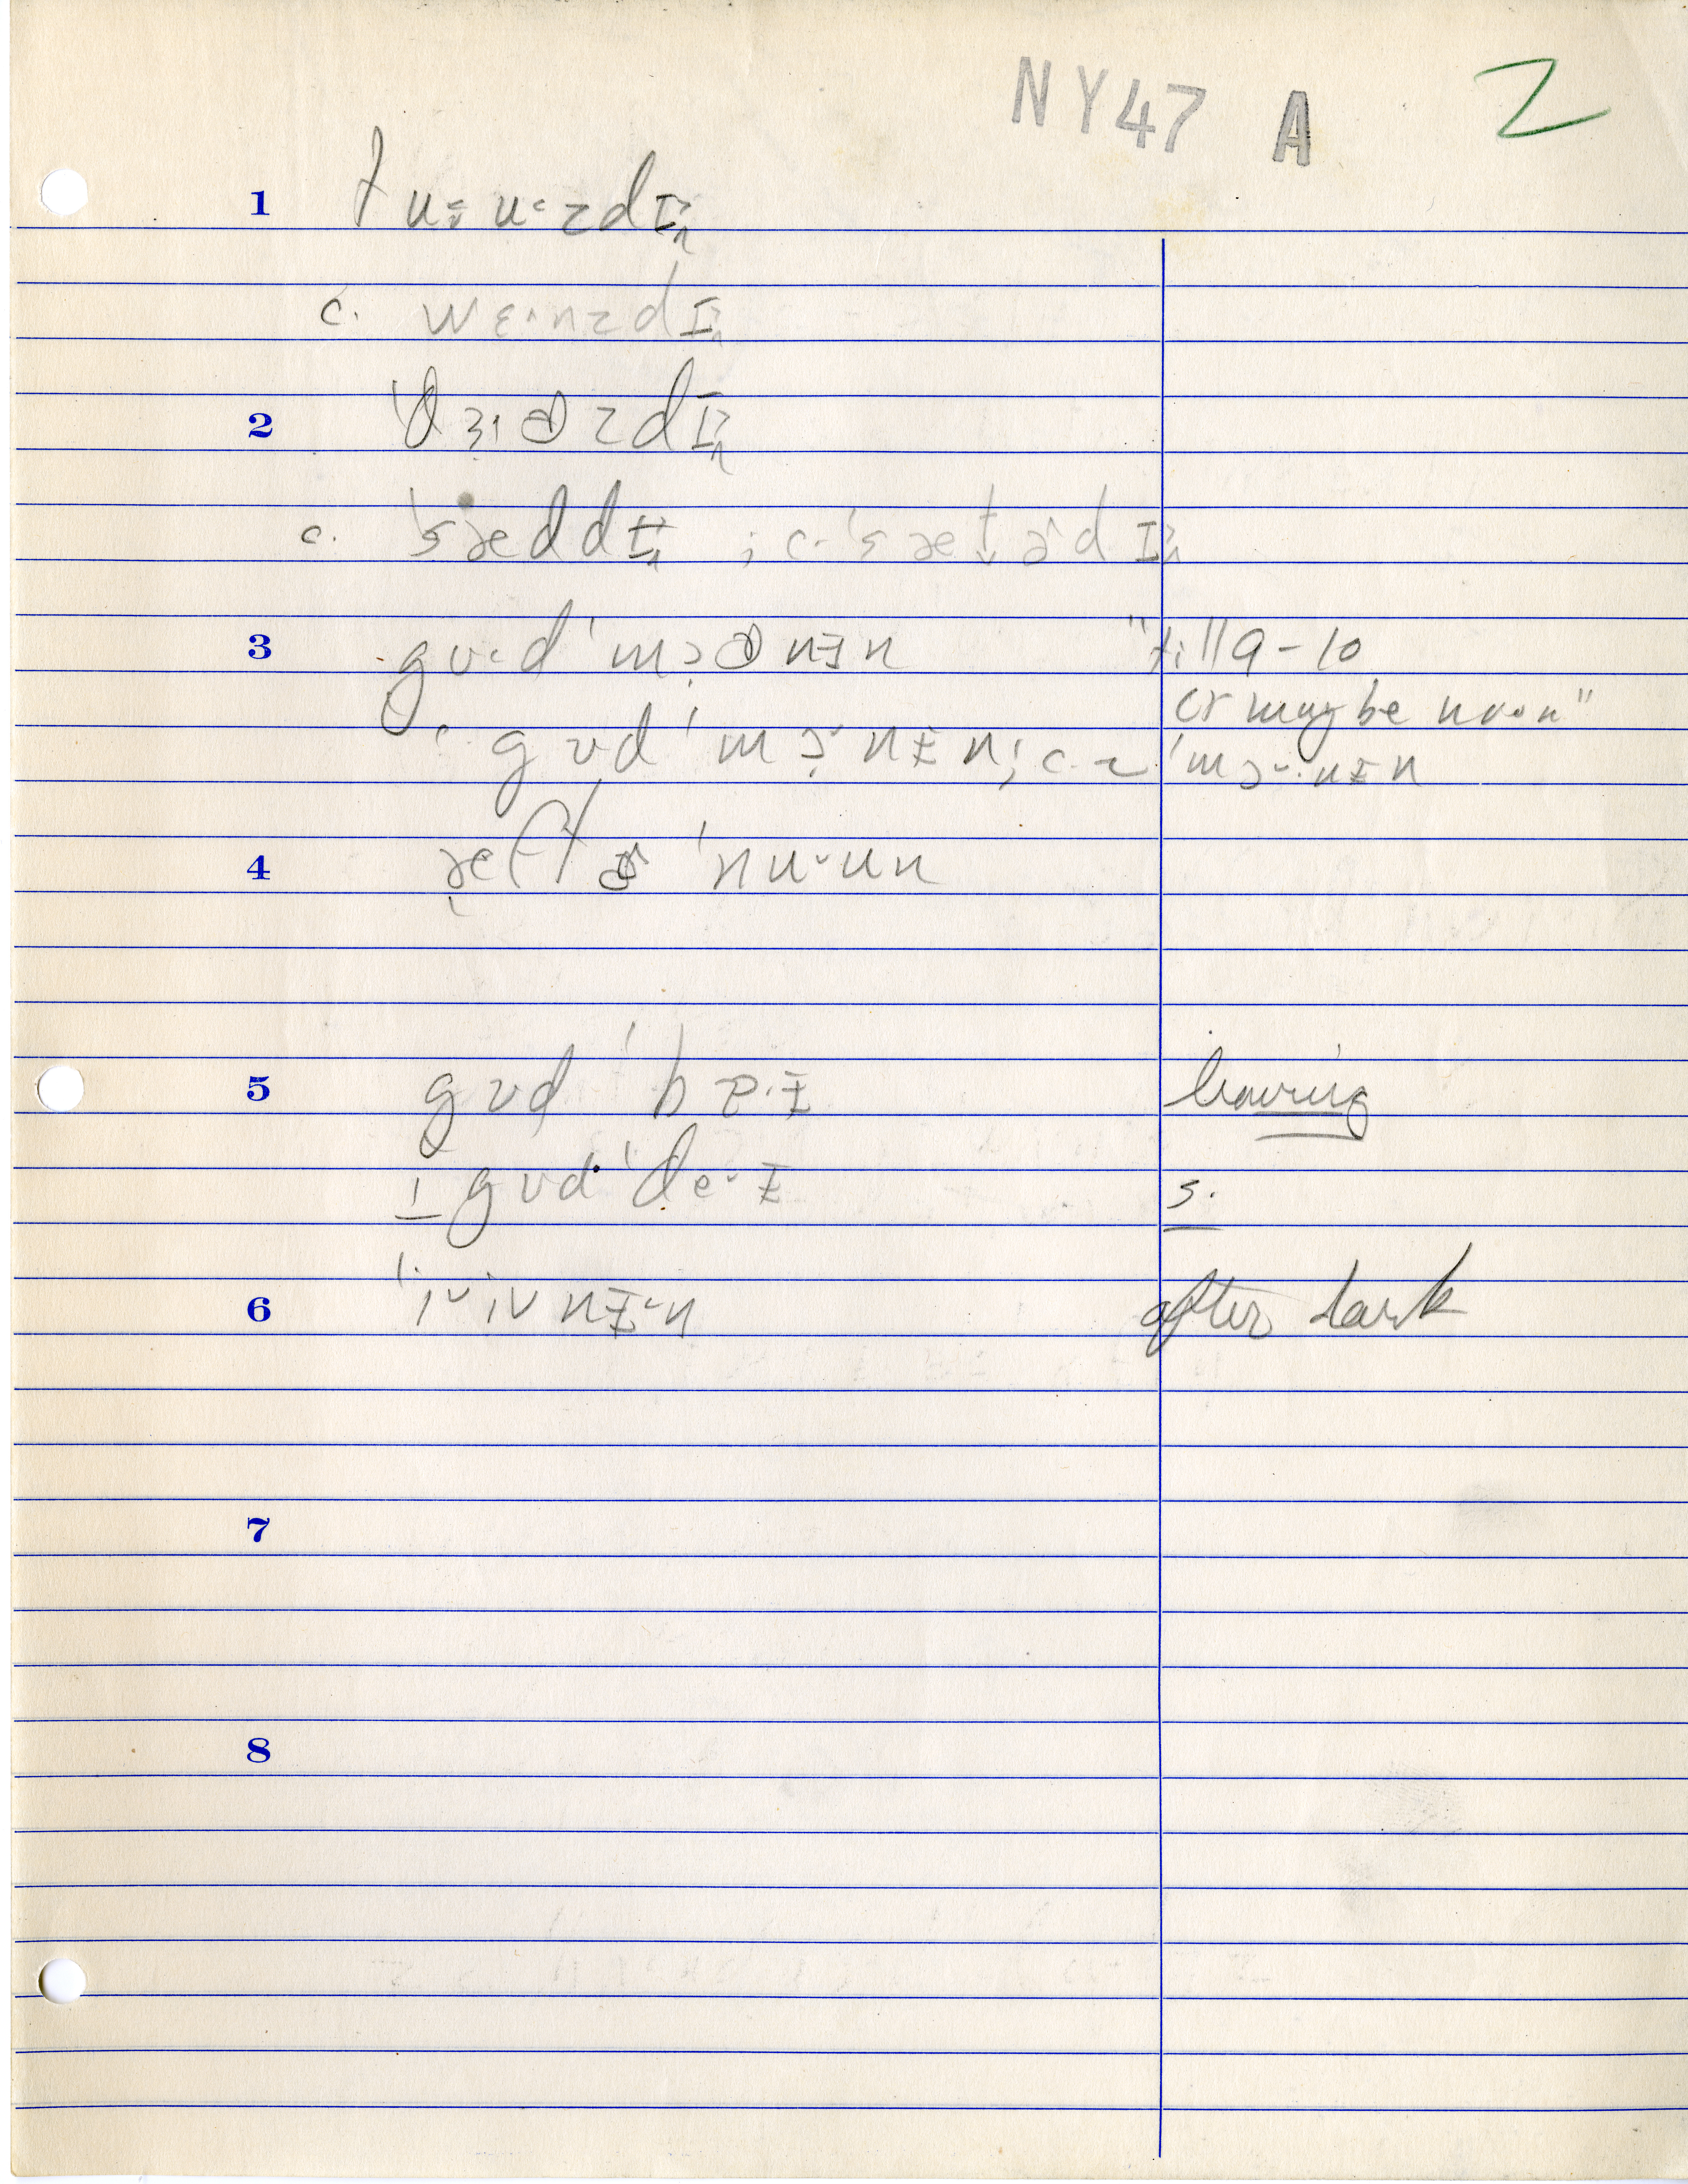 NY47 A 2
1 tu˕u·zdɪ
c. wɛ·nzdɪ
2 'θɜ·ɚzdɪ
c. 'sæddɪ ; c. 'sætɚdɪ
3 gʊ·d 'mɔɚnɨn "till 9-10
or maybe noon"
c. gʊd 'mɔ˞nɨn; c. 'mɔ˞·nɨn
4 æftɚ 'nu˘un
5 gʊd 'bɐ·ɨ leaving
† gʊd 'de·ɨ s.
6 'i˘ivnɨ˘n after dark
7
8